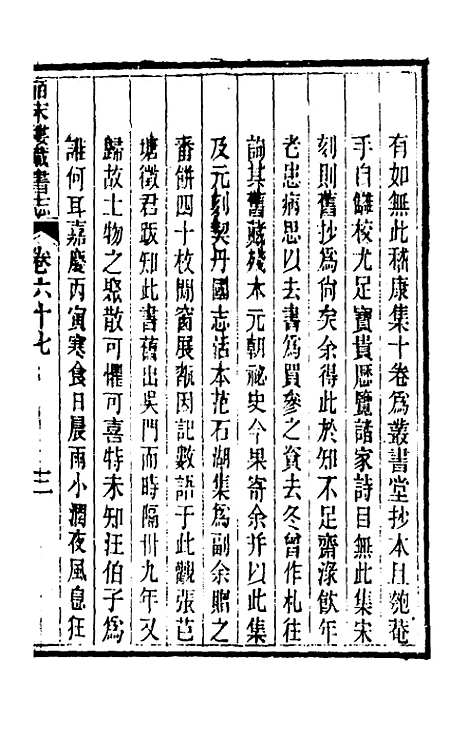 有如無此嵇康集十卷爲叢書堂抄本且匏菴
手自讎校尤足寶貴歷覽諸家詩目無此集宋
刻則舊抄爲尙矣余得此於知不足齋淥飮年
老患病思以去書爲買參之資去冬曾作札往
詢其舊藏殘本元朝祕史今果寄余并以此集
及元刻契丹國志活本范石湖集爲副余贈之
番餅四十枚閒窗展翫因記數語于此觀張芑
塘徵君跋知此書舊出吳門而時隔卅九年又
歸故土物之聚散可懼可喜特未知汪伯子爲
誰何耳嘉慶丙寅寒食日晨雨小潤夜風息狂
皕宋樓藏書志
卷六十七